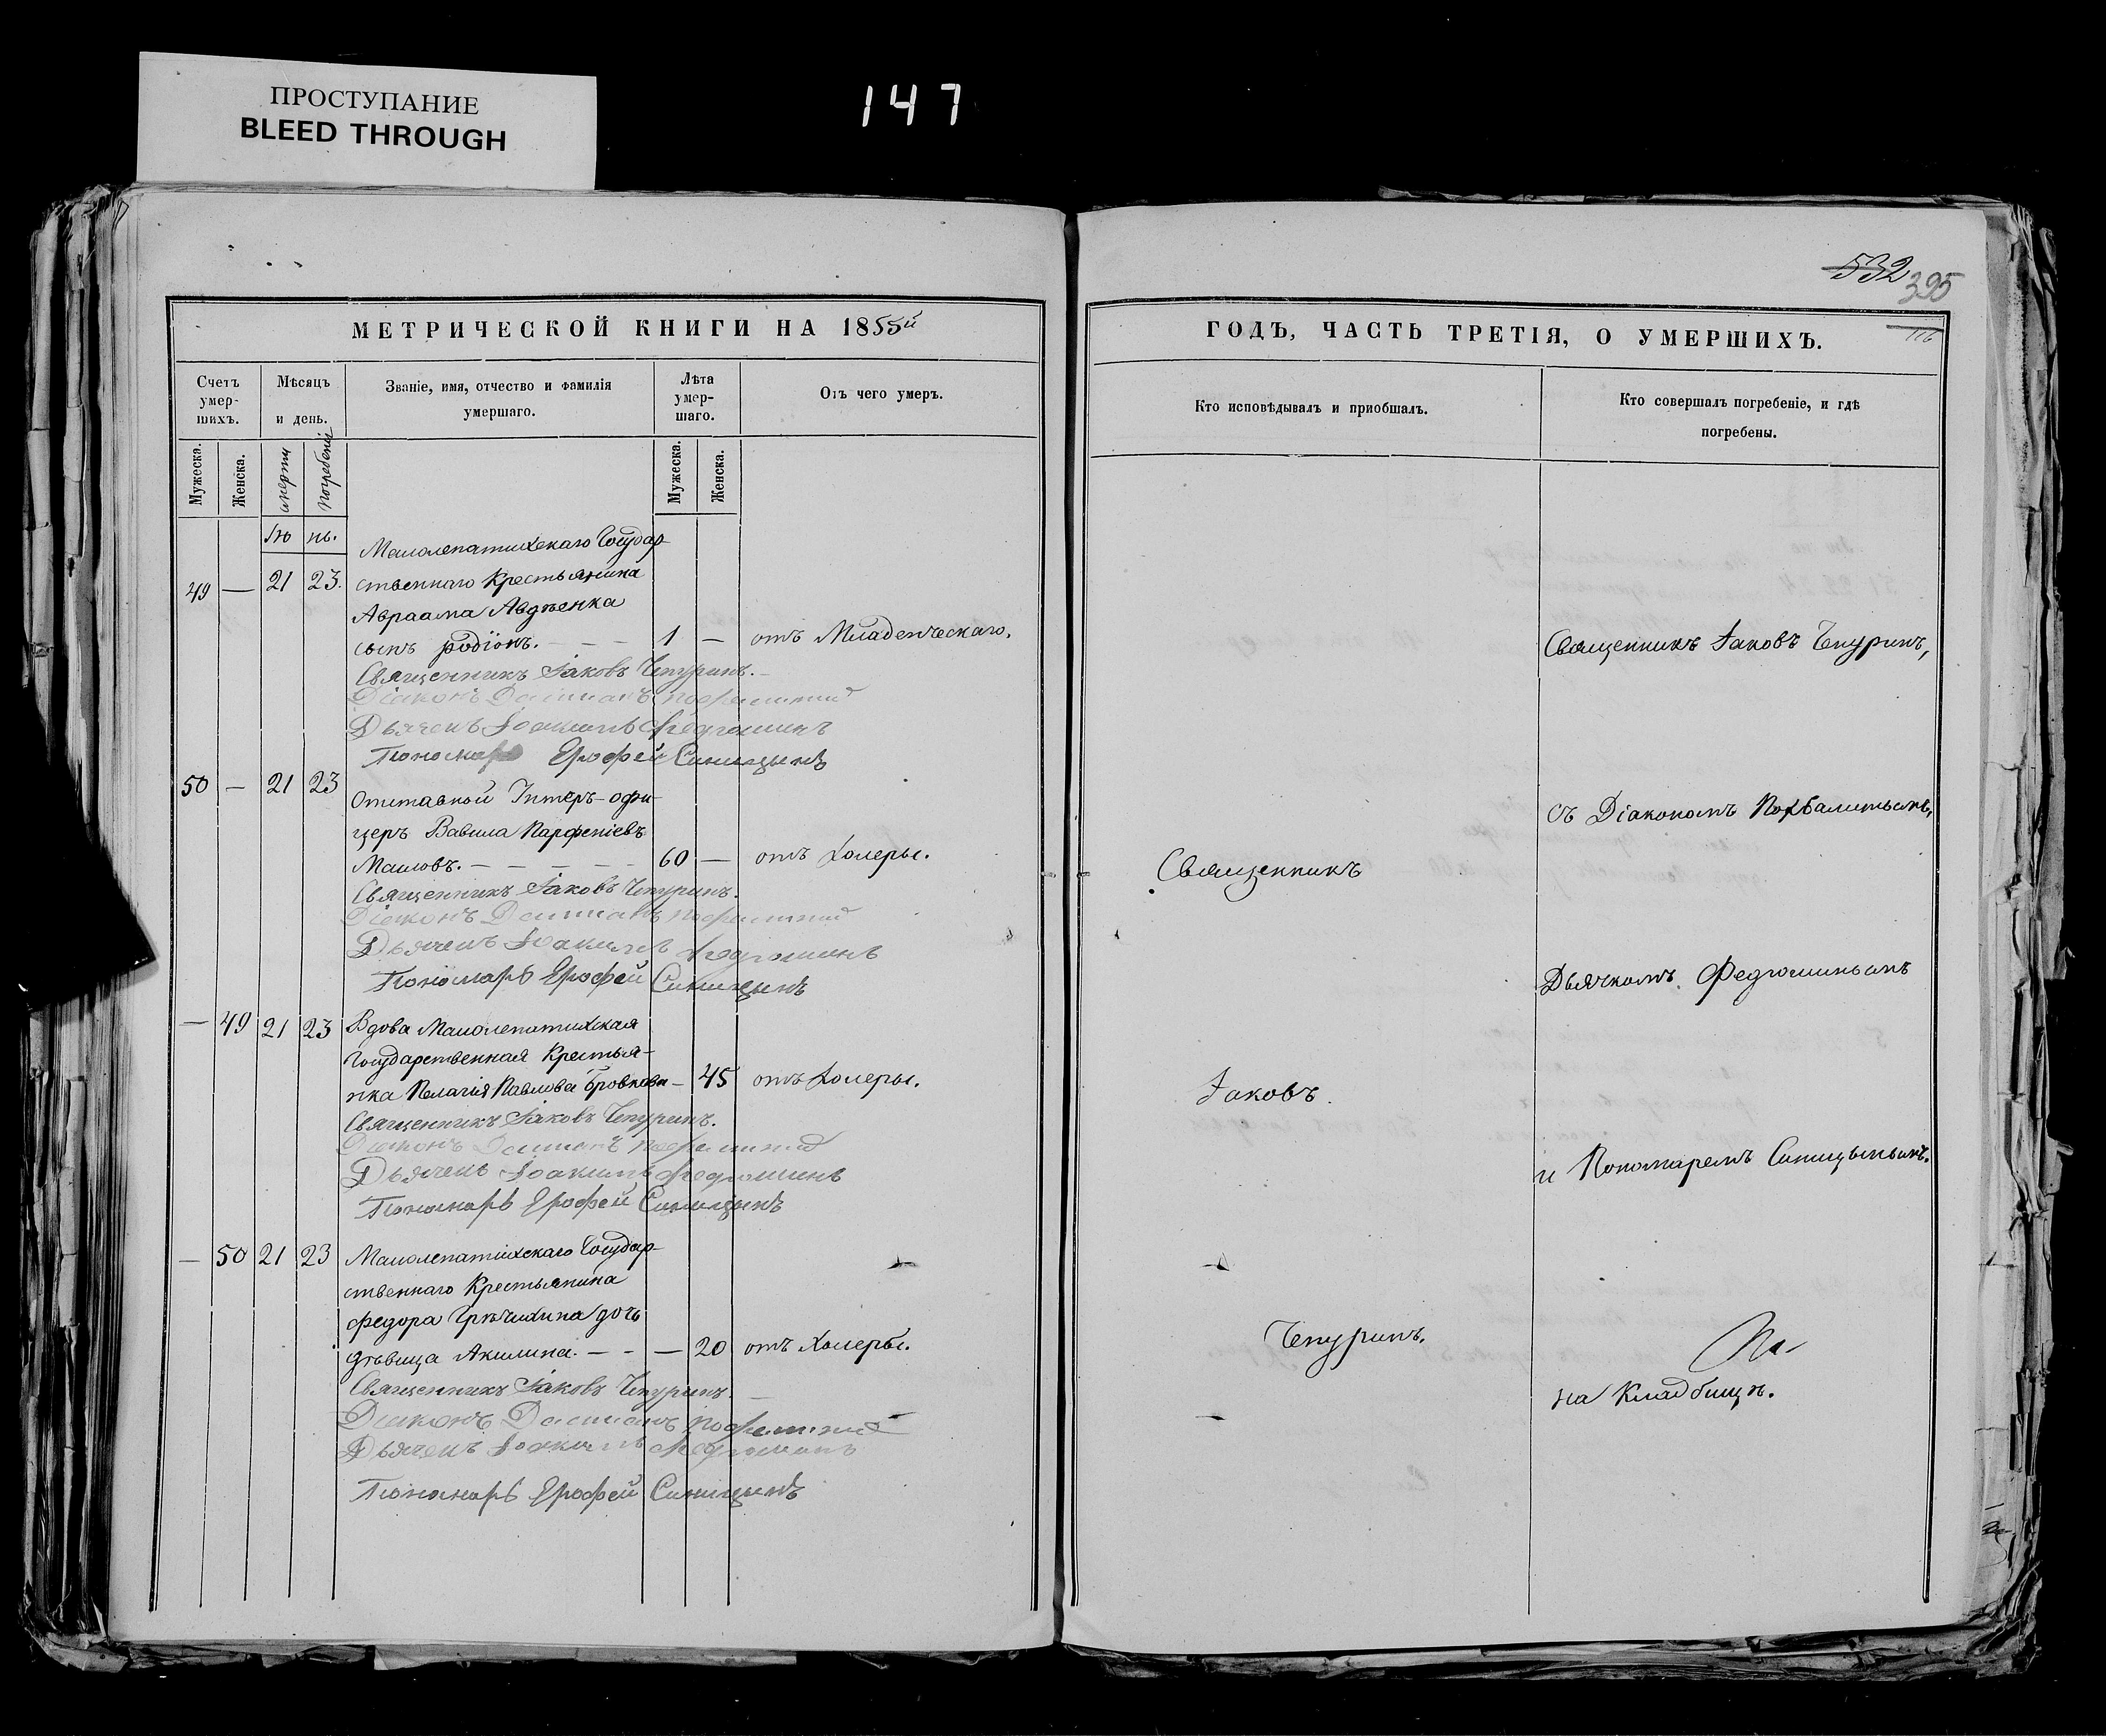 ПРОСТУПАНИЕ
BLEED THROUGH
147
МЕТРИЧЕСКОЙ КНИГИ НА 1855й
Счетъ умер-шихъ.
Мѣсяцъ и день.
Званіе, имя, отчество и фамилія умершаго.
Лѣта умер-шаго.
Отъ чего умеръ.
Мужеска.
Женска.
смерти
погребенія
Мужеска.
Женска.
Малолепатихскаго Государ-
49 — 21 23. ственнаго Крестьянина
Авраама Авдѣенка
сынъ Родіонъ. — — 1 — отъ Младенческаго.
Священникъ Іаковъ Чепуринъ.
Діаконъ
Дьячекъ Іоакимъ Федюшинъ
Пономарь Ерофей Синицынъ
50 — 21 23
Отставной Унтеръ-офи-
церъ Вавила Парфеніевъ
Маиовъ. — — — — 60 — отъ Холеры.
Священникъ Іаковъ Чепуринъ.
Діаконъ
Дьячекъ Іоакимъ Федюшинъ
Пономарь Ерофей Синицынъ
— 49 21 23 Вдова Малолепатихская
Государственная Крестья-
нка Пелагія Павлова Бровкова — 45 отъ Холеры.
Священникъ Іаковъ Чепуринъ.
Діаконъ
Дьячекъ Іоакимъ Федюшинъ
Пономарь Ерофей Синицынъ
— 50 21 23 Малолепатихскаго Государ-
ственнаго Крестьянина
Федора Грѣчихина дочь
дѣвица Акилина. — - — 20 отъ Холеры.
Священникъ Іаковъ Чепуринъ.
Діаконъ
Дьячекъ Іоакимъ Федюшинъ
Пономарь Ерофей Синицынъ
532
395
116
ГОДЪ, ЧАСТЬ ТРЕТІЯ, О УМЕРШИХЪ.
Кто исповѣдывалъ и пріобщалъ.
Кто совершалъ погребеніе, и гдѣ
погребены.
Священникъ Іаковъ Чепуринъ,
съ Діакономъ
Священникъ
Дьячкомъ Федюшинымъ
Іаковъ.
и Пономаремъ Синицынымъ.
Чепуринъ.
На
на Кладбищѣ.